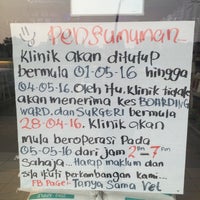 PENGUMUMAN
Klinik akan ditutup
bermula 01-05-16 hingga
04-05-16. Oleh itu. Klinik tidak
akan menerima kes BOARDING
WARD. dan SURGERI bermula
28-04-16. Klinik akan
mula beroperasi Pada
05-05-16 dari jam 2pm-7pm
Sahaja... Harap maklum dan
sila ikuti perkembangan kami...
FB Page: Tanya Sama Vet